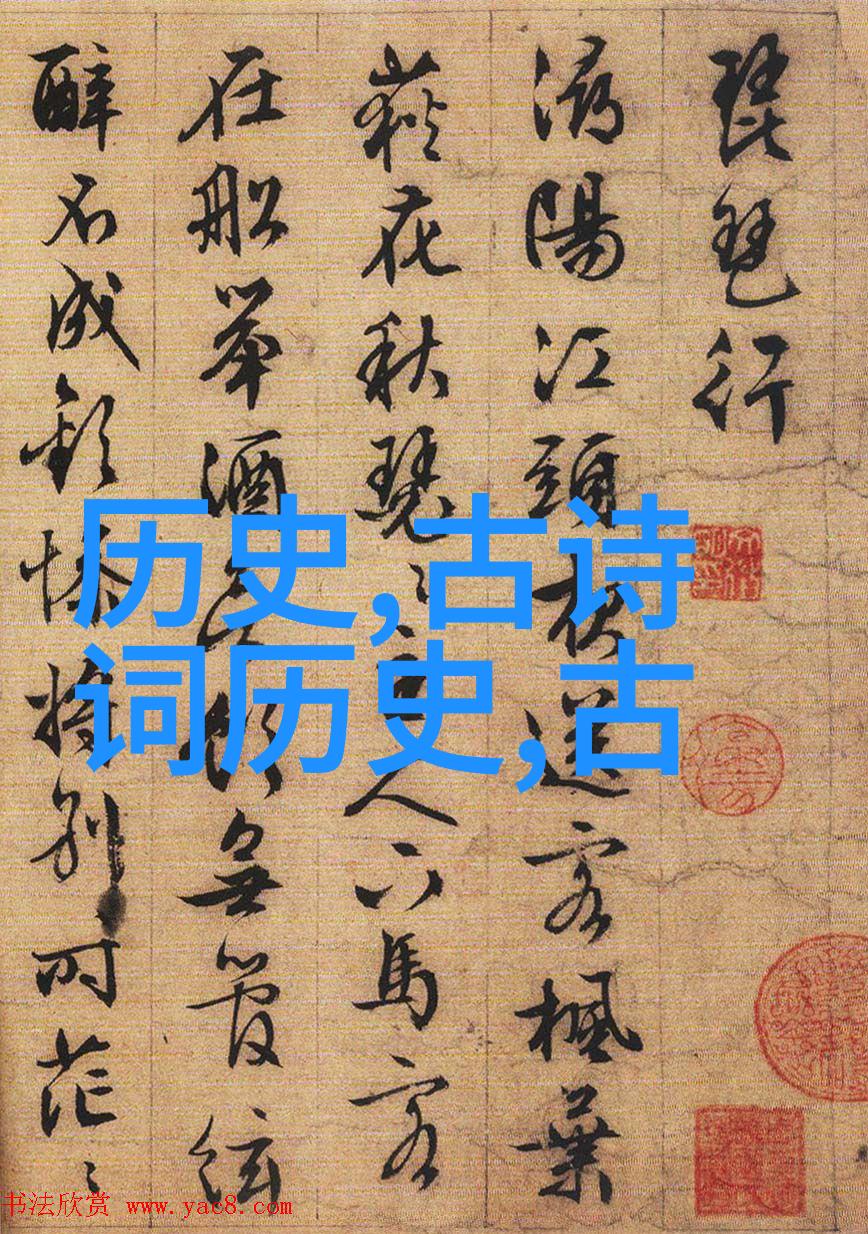 琵琶行
潯陽江頭夜送客楓葉
荻花秋瑟〻主人下馬客
在船舉酒欲飲無管絃
醉不成歡慘將別時茫〻
历史,古诗
词历史,古
书法欣赏 www.yac8.com